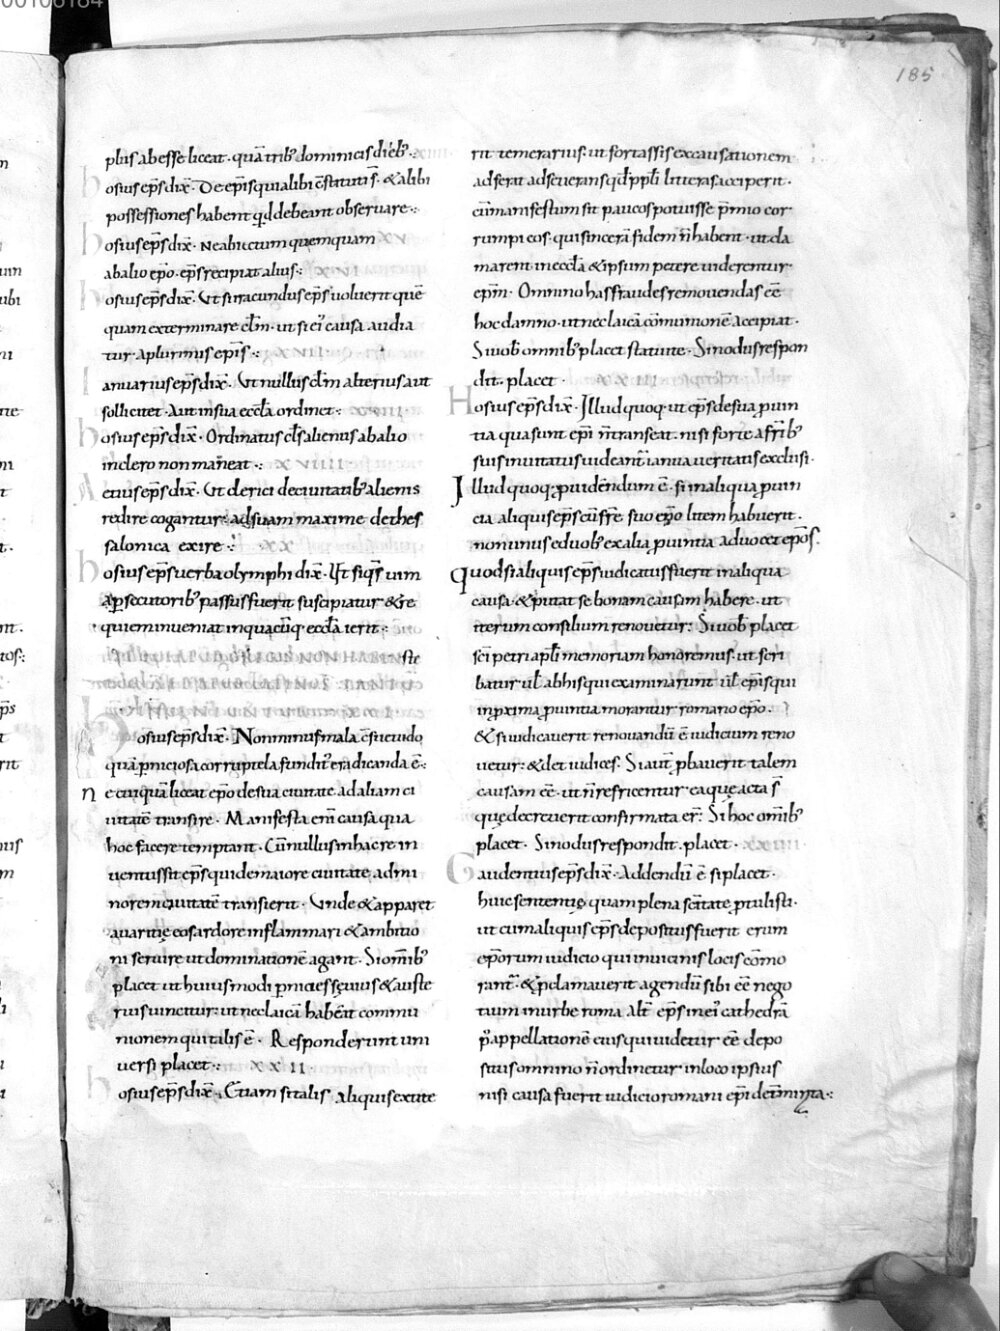 185
plus abesse liceat. quā trib; dominicis dieb;.
osius ep̄s dix̄. De ep̄is qui alibi c̄stituti s̄. & alibi
possessiones habent qd debeant obseruare.
osius ep̄s dix̄. Ne abiectum quemquam XV
ab alio ep̄o. ep̄s recipiat alius:
osius ep̄s dix̄. Ut si iracundus ep̄s uoluerit quē
quam exterminare cl̄m. ut si ei' causa audia
tur. a plurimis ep̄is:
anuarius ep̄s dix̄. Ut nullus cl̄m alterius aut
sollicitet. Aut in sua eccl̄a ordinet:
osius ep̄s dix̄. Ordinatus cl̄s alienus ab alio
in clero non maneat. XVIIII
etius ep̄s dix̄. Ut clerici de ciuitatib; alienis
redire cogantur: ad suam maxime de thes
salonica exire: XX
osius ep̄s uerba olymphi dix̄. Ut siqs uim
a p̄secutorib; passus fuerit suscipiatur & re
quiem inueniat in quacūq; eccl̄a ierit:
osius ep̄s dix̄. Non minus mala c̄suetudo
quā p̄niciosa corruptela fundit' eradicanda ē:
ne cuiquā liceat ep̄o de sua ciuitate ad aliam ci
uitatē transire. Manifesta em̄ causa qua
hoc facere temptant. Cū nullus in hac re in
uentus sit ep̄s qui de maiore ciuitate ad mi
norem ciuitatē transierit. Unde & apparet
auaritię eos ardore inflammari & ambitio
ni seruire ut dominationē agant. Si om̄ib;
placet ut huiusmodi p̄nicies sęuius & auste
rius uincitur: ut nec laicā habeāt commu
nionem qui talis ē. Responderunt uni
uersi placet: XXII
osius ep̄s dix̄. Etiam si talis aliquis extite
rit temerarius. ut fortassis excausationem
adferat adseuerans qd̄ ppl̄i litteras acceperit.
cū manifestum sit paucos potuisse p̄mio cor
rumpi eos. qui sincerā fidem n̄ habent. ut cla
marent in eccl̄a & ipsum petere uiderentur
ep̄m. Omnino has fraudes remouendas eē
hoc damno. ut nec laicā cōmunionē accipiat.
Si uob̄ omnib; placet statuite. Sinodus respon
dit. placet.
Hosius ep̄s dix̄. Illud quoq; ut ep̄s de sua ꝓuin
tia qua sunt ep̄i n̄ transeat. nisi forte a fr̄ib;
suis inuitatus uideant' ianua ueritatis exclusi.
Illud quoq; ꝓuidendum ē. si in aliqua ꝓuin
cia aliquis ep̄s cū fr̄e suo ep̄o litem habuerit.
non unus e duob; ex alia ꝓuintia aduocet ep̄os.
Quod si aliquis ep̄s iudicatus fuerit in aliqua
causa. & putat se bonam causam habere. ut
iterum consilium renouetur: Si uob̄ placet
sc̄i petri apl̄i memoriam honoremus. ut scri
batur ut ab his qui examinarunt ut ep̄is qui
in ꝓxima ꝓuintia morantur romano ep̄o.
& si iudicauerit renouandū ē iudicium reno
uetur: & det iudices. Si aut̄ p̄bauerit talem
causam eē. ut n̄ refricentur eaque acta s̄
quę decreuerit confirmata er̄. Si hoc om̄ib;
placet. Sinodus respondit. placet. XXIIII
Gaudentius ep̄s dix̄. Addendū ē si placet.
huic sententię quam plena sc̄itate ꝓtulisti.
ut cum aliquis ep̄s depositus fuerit eorum
ep̄orum iudicio qui in uicinis locis cōmo
rant̄. & ꝓclamauerit agendū sibi eē nego
tium in urbe roma. alt̄ ep̄s in ei' cathedrā
p' appellationē eius qui uidetur eē depo
situs omnino n̄ ordinetur in loco ipsius
nisi causa fuerit iudicio romani ep̄i det̄minata: